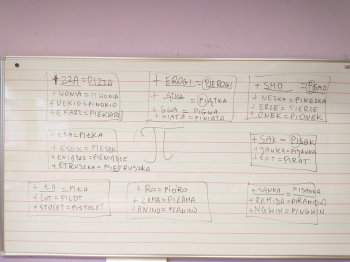 + ZZA = PIZZA
+ WONIA = PIWONIA
+ NOKIO = PINOKIO
+ EKARZ = PIEKARZ
+ EROGI = PIEROGI
+ ĄTKA = PIĄTKA
+ GWA = PIGWA
+ NIATA = PINIATA
+ SMO = PISMO
+ ECZKA = PIECZKA
+ ERZE = PIERZE
+ ONEK = PIONEK
+ ŁKA = PIŁKA
+ ESEK = PIESEK
+ ENIĄDZE = PIENIĄDZE
+ ETRUSZKA = PIETRUSZKA
π
+ SAK = PISAK
+ JAWKA = PIJAWKA
+ RAT = PIRAT
+ ŁA = PIŁA
+ LOT = PILOT
+ STOLET = PISTOLET
+ RO = PIÓRO
+ ŻAMA = PIŻAMA
+ ANINO = PIANINO
+ SANKA = PISANKA
+ RAMIDA = PIRAMIDA
+ NGWIN = PINGWIN